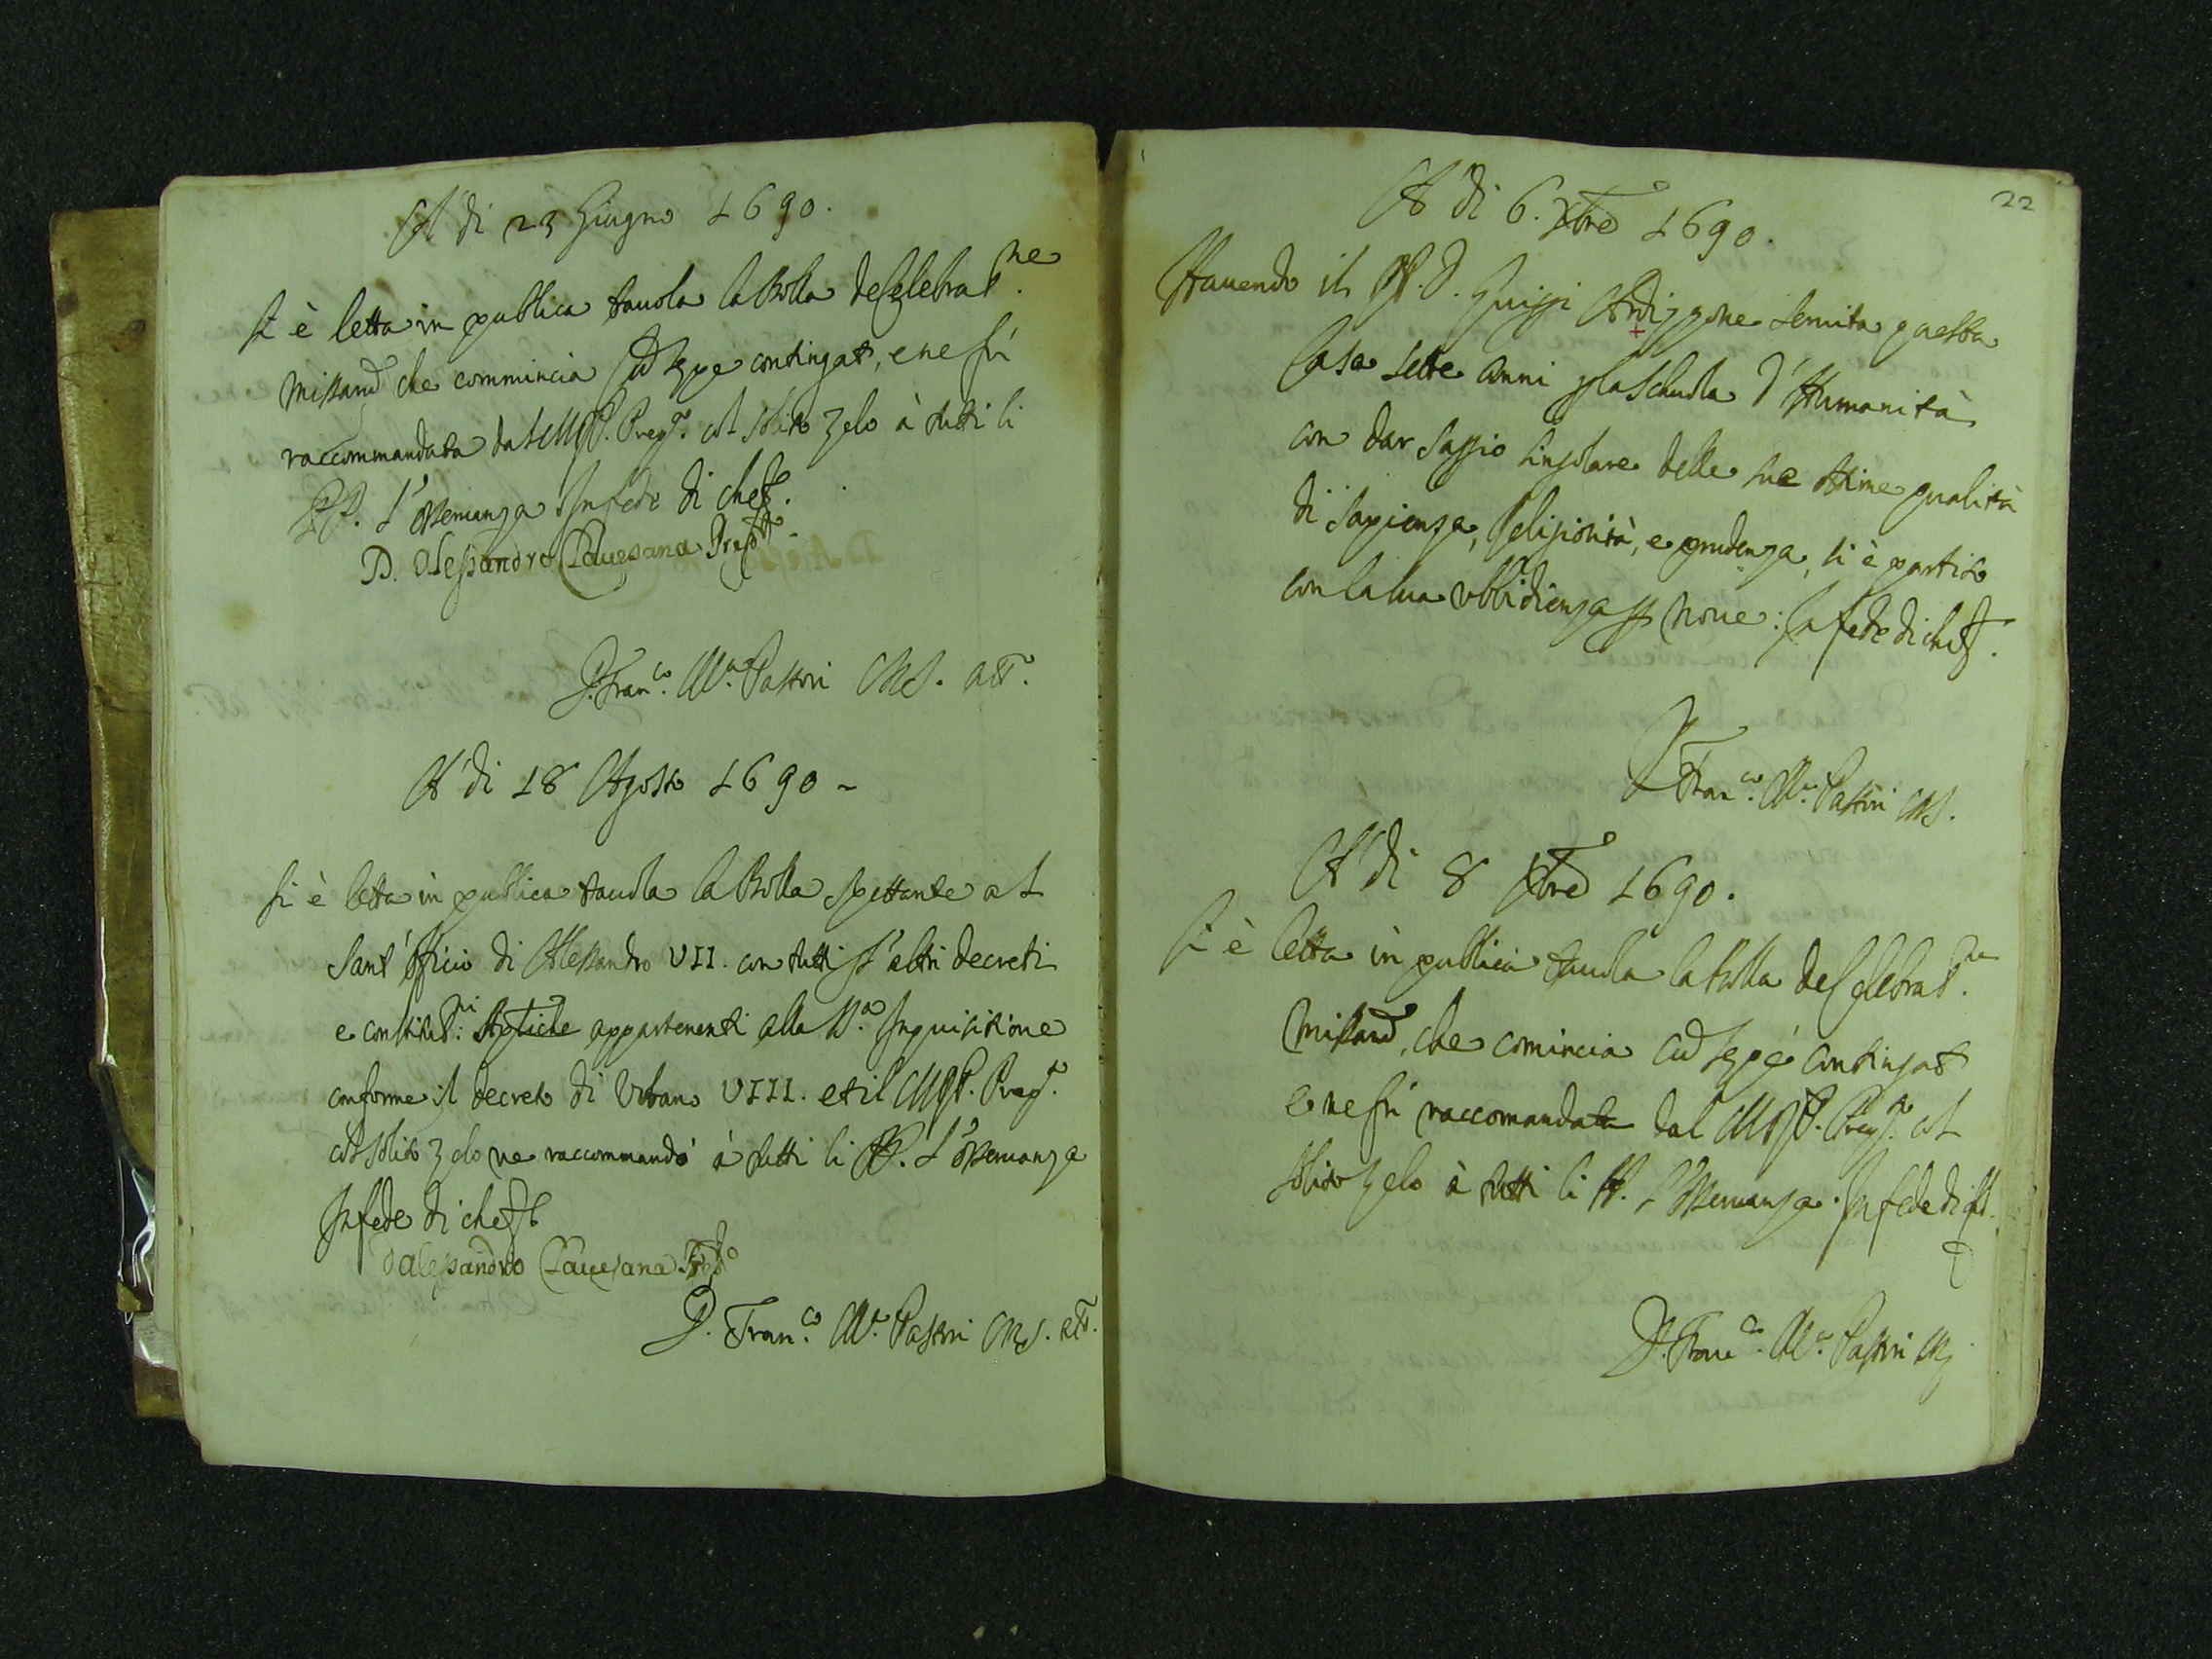 A' di 23 Giugno 1690.
Si è letta in publica tauola la Bolla de Celebrat.ne
Missarũ che commincia Cũ sępe contingat, e ne fù
raccommandata dal M.R.P. Prep.to col solito zelo à tutti li
PP. l'osseruanza In fede di che &.
D. Alessandro Pauesana Prep.to
D. Fran.co M.a Pastori CRS. att.
A' di 18 Agosto 1690 -
Si è letta in publica tauola la Bolla spettante al
Sant'Officio di Alessandro VII. con tutti l'altri decreti
e constitut.ni: appartenenti alla S.a Inquisitione
conforme il decreto di Vrbano VIII. et il M.R.P. Prep.to
col solito zelo ne raccommandò à tutti li PP. l'osseruanza
In fede di che &
D Alessandro Pauesana Prep.to
D. Fran.co M.a Pastori CRS. att.
22
A' di 6. Xbre 1690.
Hauendo il P. D. Ardizzone seruita questa
Casa sette anni p la Schuola d'Humanità
con dar saggio singolare delle sue ottime qualità
di sapienza, Religiosità, e prudenza, si è partito
con la sua vbbidienza p Noue: In fede di che &.
D Fran.co M.a Pastori CRS.
A' di 8 Xbre 1690.
Si è letta in publica tauola la bolla de Celebrat.ne
Missarũ, che comincia cũ sępé contingat
e ne fù raccomandata dal M.R.P. Prep.to col
solito zelo à tutti li PP. l'osseruanza. In fede di che
&
D. Fran.co M.a Pastori CRS